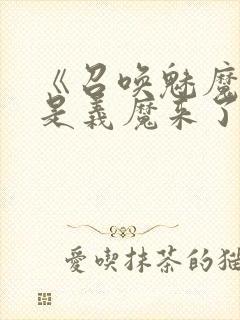 《召唤魅魔
是義魔来了
愛喫抹茶的猫